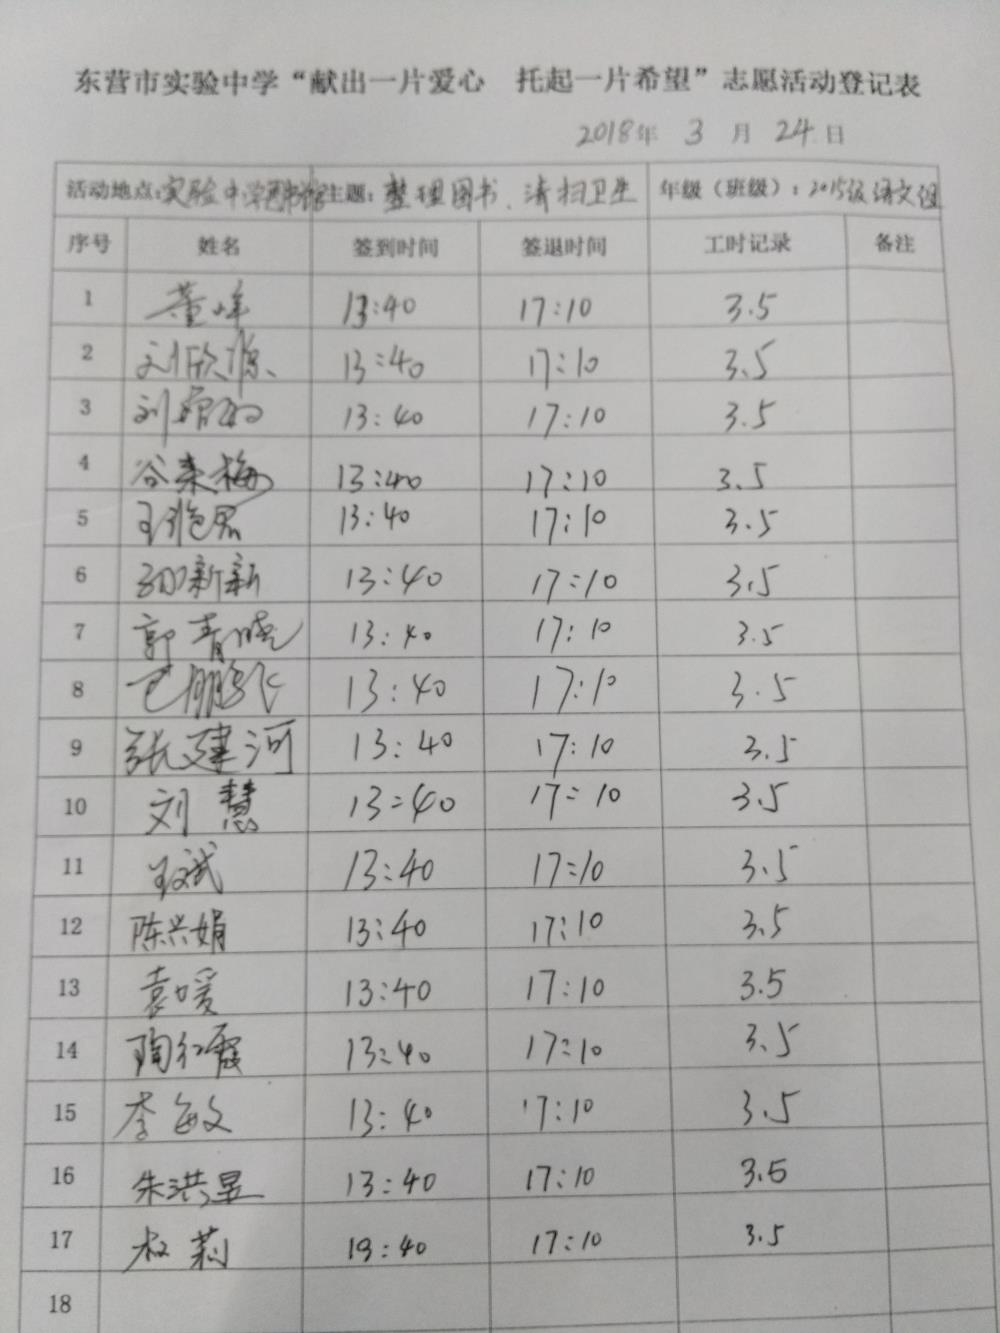 东营市实验中学“献出一片爱心 托起一片希望”志愿活动登记表
2018年 3 月 24 日
活动地点：实验中学图书馆 主题：整理图书、清扫卫生 年级（班级）：2015级语文组
序号 姓名 签到时间 签退时间 工时记录 备注
1 董峰 13:40 17:10 3.5
2 刘欣源 13:40 17:10 3.5
3 刘 13:40 17:10 3.5
4 谷来梅 13:40 17:10 3.5
5 王艳君 13:40 17:10 3.5
6 新新 13:40 17:10 3.5
7 郭青晓 13:40 17:10 3.5
8 巴鹏飞 13:40 17:10 3.5
9 张建河 13:40 17:10 3.5
10 刘慧 13:40 17:10 3.5
11 斌 13:40 17:10 3.5
12 陈兴娟 13:40 17:10 3.5
13 袁媛 13:40 17:10 3.5
14 陶红霞 13:40 17:10 3.5
15 李敏 13:40 17:10 3.5
16 朱洪昱 13:40 17:10 3.5
17 权莉 13:40 17:10 3.5
18